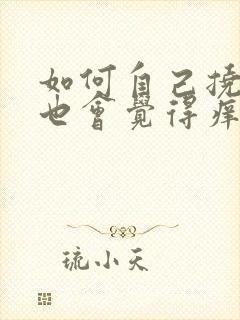 如何自己挠
也會覺得痒
琉小天